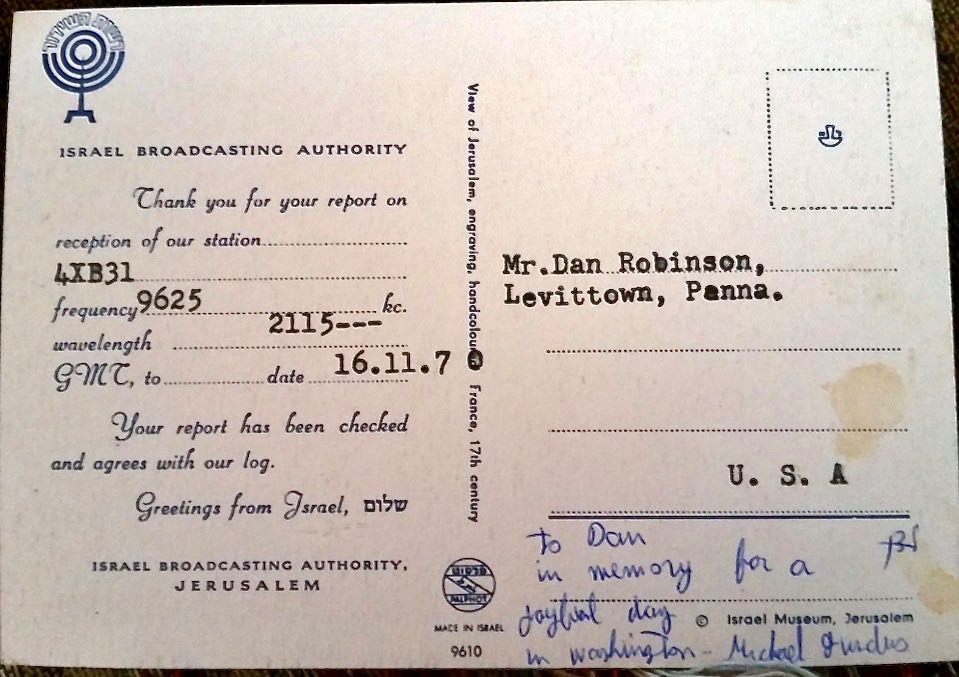 רשות השידור
ISRAEL BROADCASTING AUTHORITY
Thank you for your report on
reception of our station
4XB31
frequency 9625 kc.
wavelength 2115---
GMT, to date 16.11.7
Your report has been checked
and agrees with our log.
Greetings from Israel, שלום
ISRAEL BROADCASTING AUTHORITY,
JERUSALEM
View of Jerusalem, engraving, handcolou France, 17th century
פלפוט
PALPHOT
MADE IN ISRAEL
9610
Mr.Dan Robinson,
Levittown, Penna.
U. S. A
to Dan
in memory for a
joyful day
in washington - Michael
© Israel Museum, Jerusalem